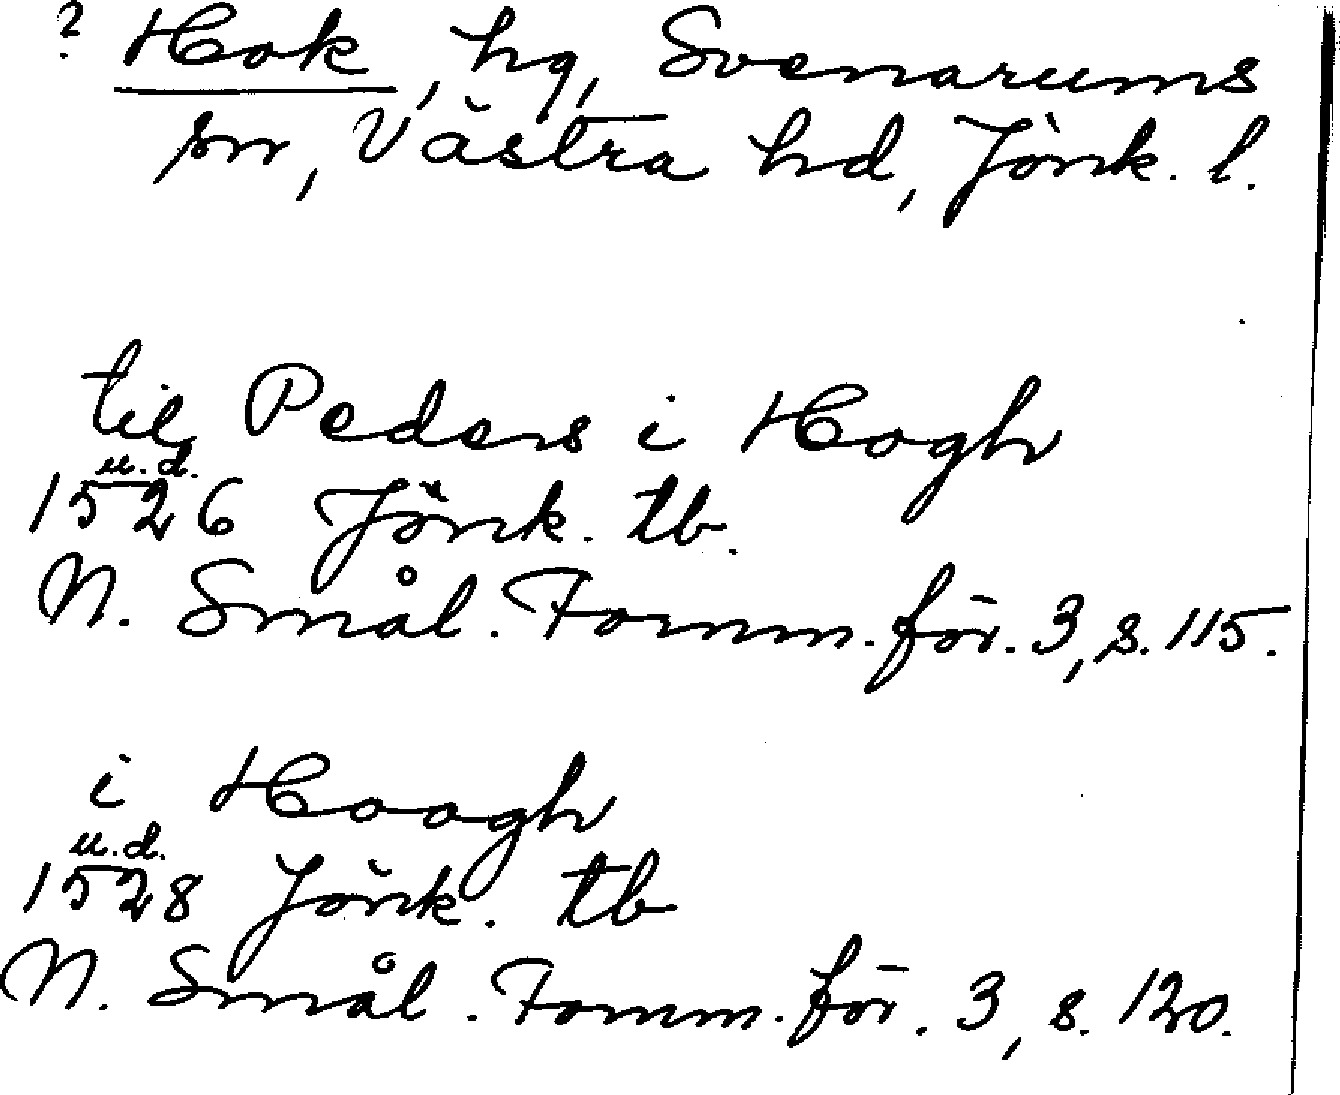 ? Hok, hg, Svenarums
sn, Västra hd, Jönk. l.
til Peders i Hogh
u.d.
1526 Jönk. tb.
N. Smål. Fornm. för. 3, s. 115.
i Hoogh
u.d.
1528 Jönk. tb
N. Smål. Fornm. för. 3, s. 120.